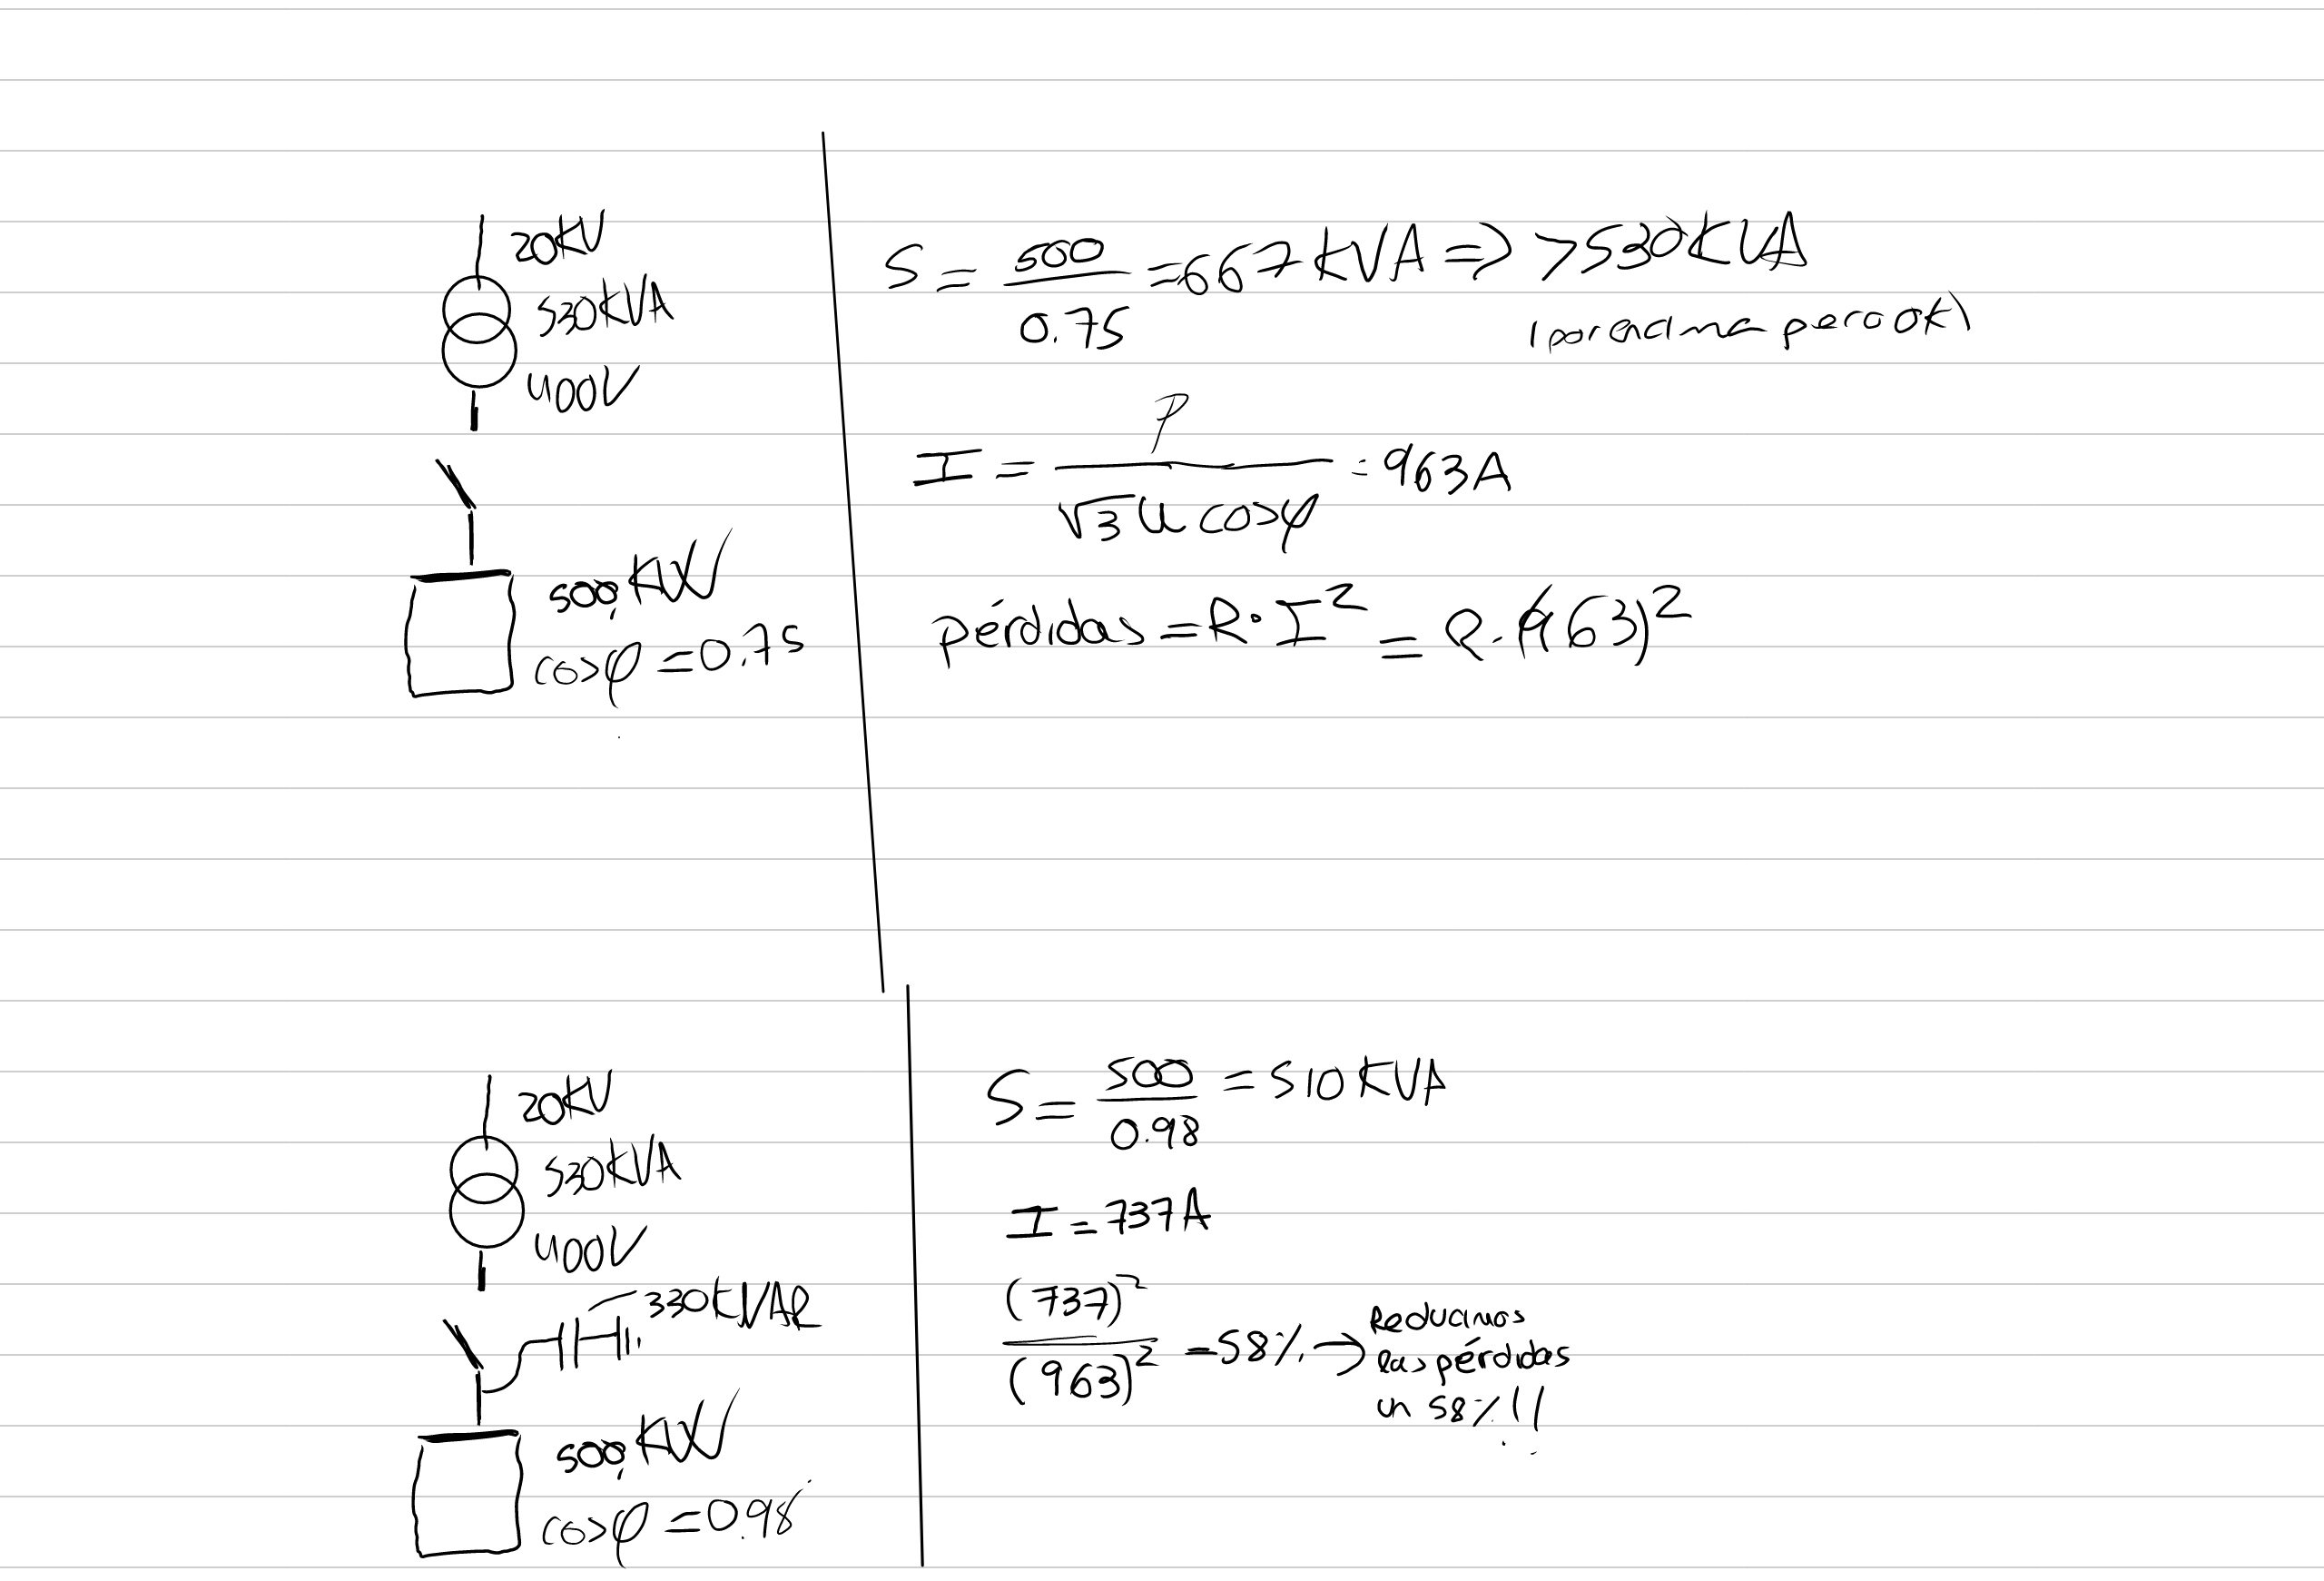 20kV
520kVA
400V
500kW
cosφ = 0.75
S = 500/0.75 = 667 kVA => >> 520KVA
I = P/(√3 U cosφ) = 963A
pérdidas = R·I² = R·(963)²
20kV
520kVA
400V
330kVAR
500kW
cosφ = 0.98
S = 500/0.98 = 510 kVA
I = 737A
(737)²/(963)² = 58% →
Reducimos
las pérdidas
un 58%!!